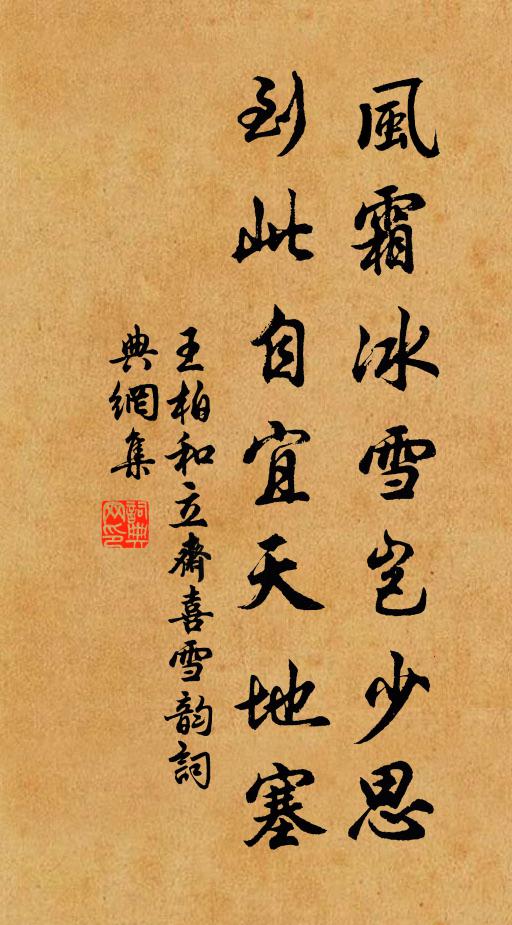 風霜冰雪豈少思
到此自宜天地塞
王柏和立齋喜雪韵詞
典網集
詞典網印